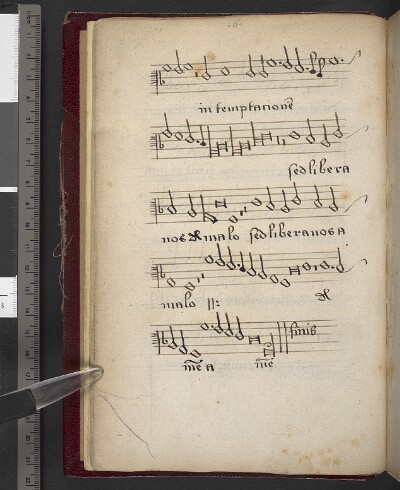 ·6·
in temptationē
sed libera
nos a malo sed libera nos a
malo ||: a
me a mē
finis